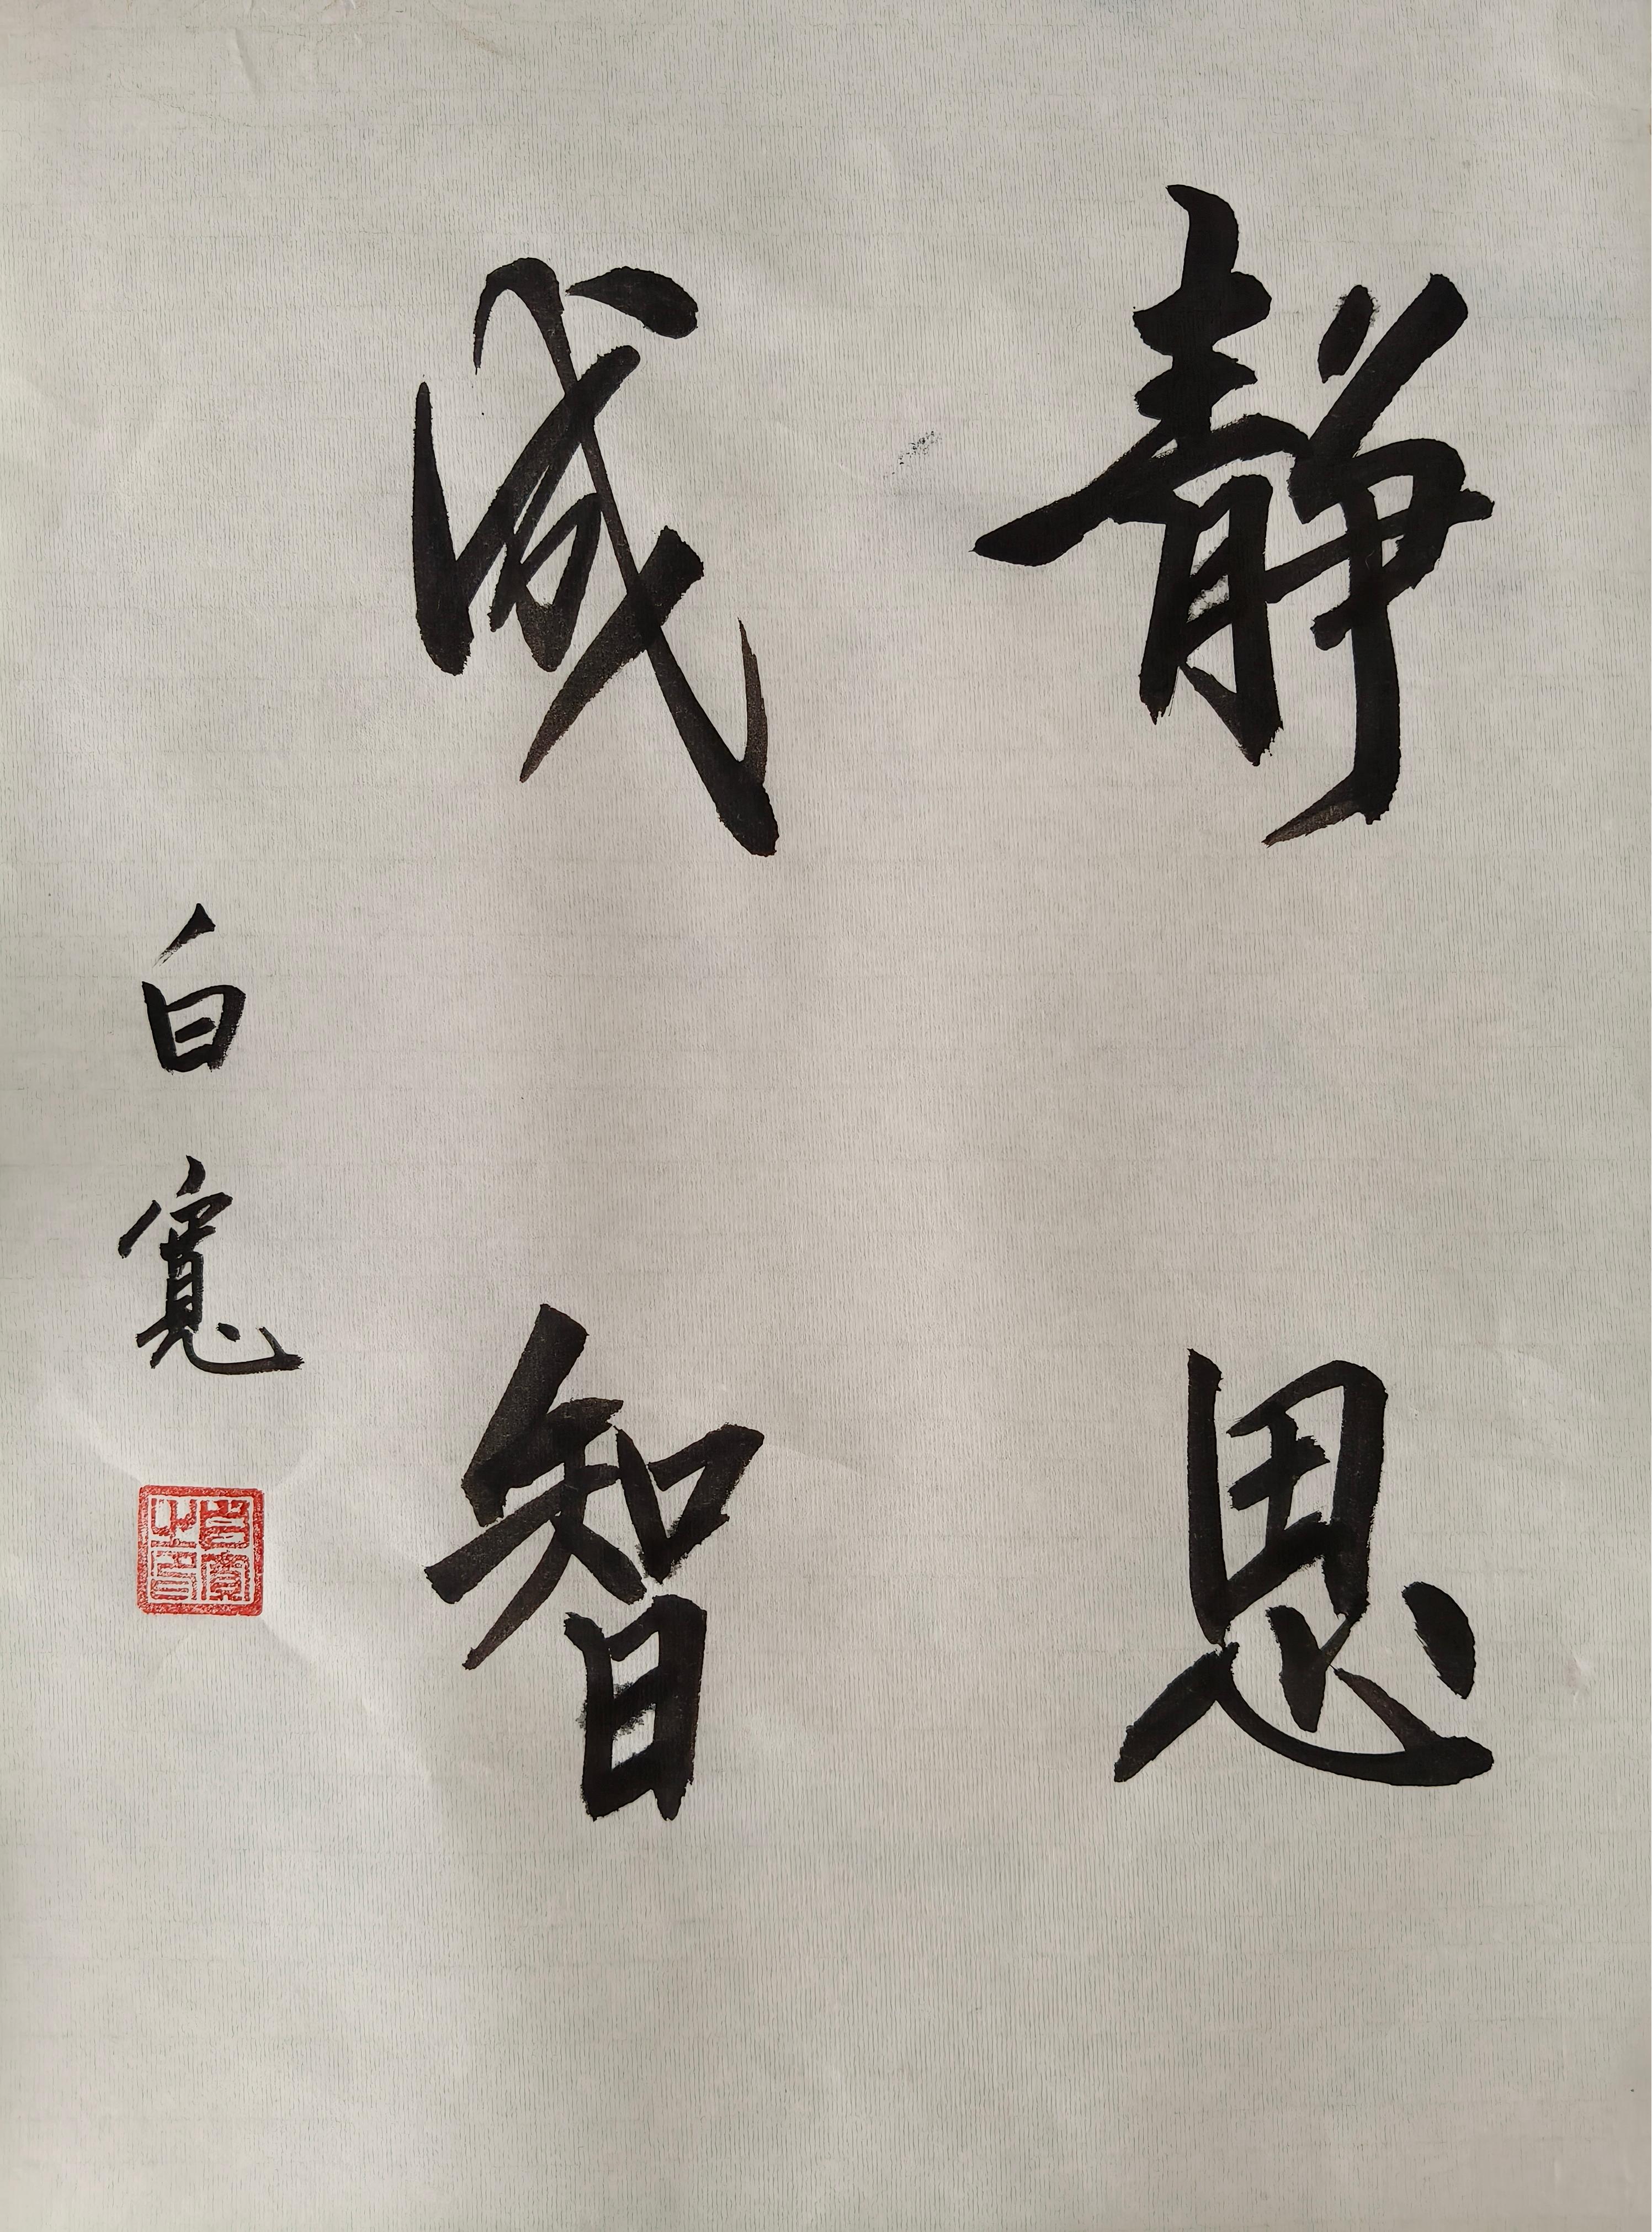 靜思
成智
白寬